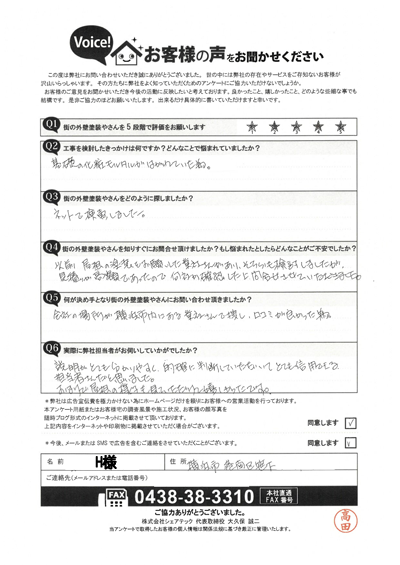 Voice!
お客様の声をお聞かせください
この度は弊社にお問い合わせいただき誠にありがとうございました。世の中には弊社の存在やサービスをご存知ないお客様が
沢山いらっしゃいます。その方たちに弊社をよく知っていただくためのアンケートにご協力いただけないでしょうか。
お客様のご意見をお聞かせいただき今後の活動に反映したいと考えております。良かったこと、嬉しかったこと、どのような些細な事でも
結構です。是非ご協力のほどお願いいたします。出来るだけ具体的に書いていただけますと幸いです。
Q1 街の外壁塗装やさんを5段階で評価をお願いします ★ ★ ★ ★ ★
Q2 工事を検討したきっかけは何ですか？どんなことで悩まれていましたか？
基礎の化粧モルタルがはがれていた為。
Q3 街の外壁塗装やさんをどのように探しましたか？
ネットで検索しました。
Q4 街の外壁塗装やさんを知りすぐにお問合せ頂けましたか？もし悩まれたとしたらどんなことがご不安でしたか？
Q5 何が決め手となり街の外壁塗装やさんにお問い合わせ頂きましたか？
会社の場所が横浜市内にある業者さんで探し、口コミが良かった為
Q6 実際に弊社担当者がお伺いしていかがでしたか？
＊弊社は広告宣伝費を極力かけない為にホームページだけを頼りにお客様への営業活動を行っております。
本アンケート用紙またはお客様宅の調査風景や施工状況、お客様の顔写真を
随時ブログ形式のインターネットに掲載させて頂いております。
上記内容をインターネットや印刷物に掲載させていただく場合がございます。
同意します ✓
＊今後、メールまたはSMSで広告を含むご連絡させていただくことがございます。
同意します ✓
名前 H様 住所
ご連絡先(メールアドレスまたは電話番号)
FAX 0438-38-3310 本社直通 FAX番号
ご協力ありがとうございました。
株式会社シェアテック 代表取締役 大久保 誠二
当アンケートで取得したお客様の個人情報は関係法規に基づき厳正に管理いたします。
高田